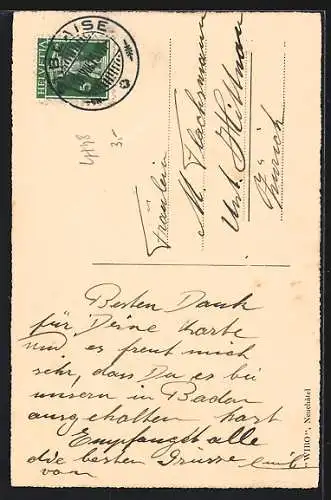 HELVETIA
5
4498
3.-
Fräulein
M. Flachsmann
Unt. Hittnau
Zürich
Besten Dank
für Deine Karte
und es freut mich
sehr, dass Du es bei
unsern in Baden
ausgehalten hast
Empfangt alle
die besten Grüsse
von
"WIBO", Neuchâtel